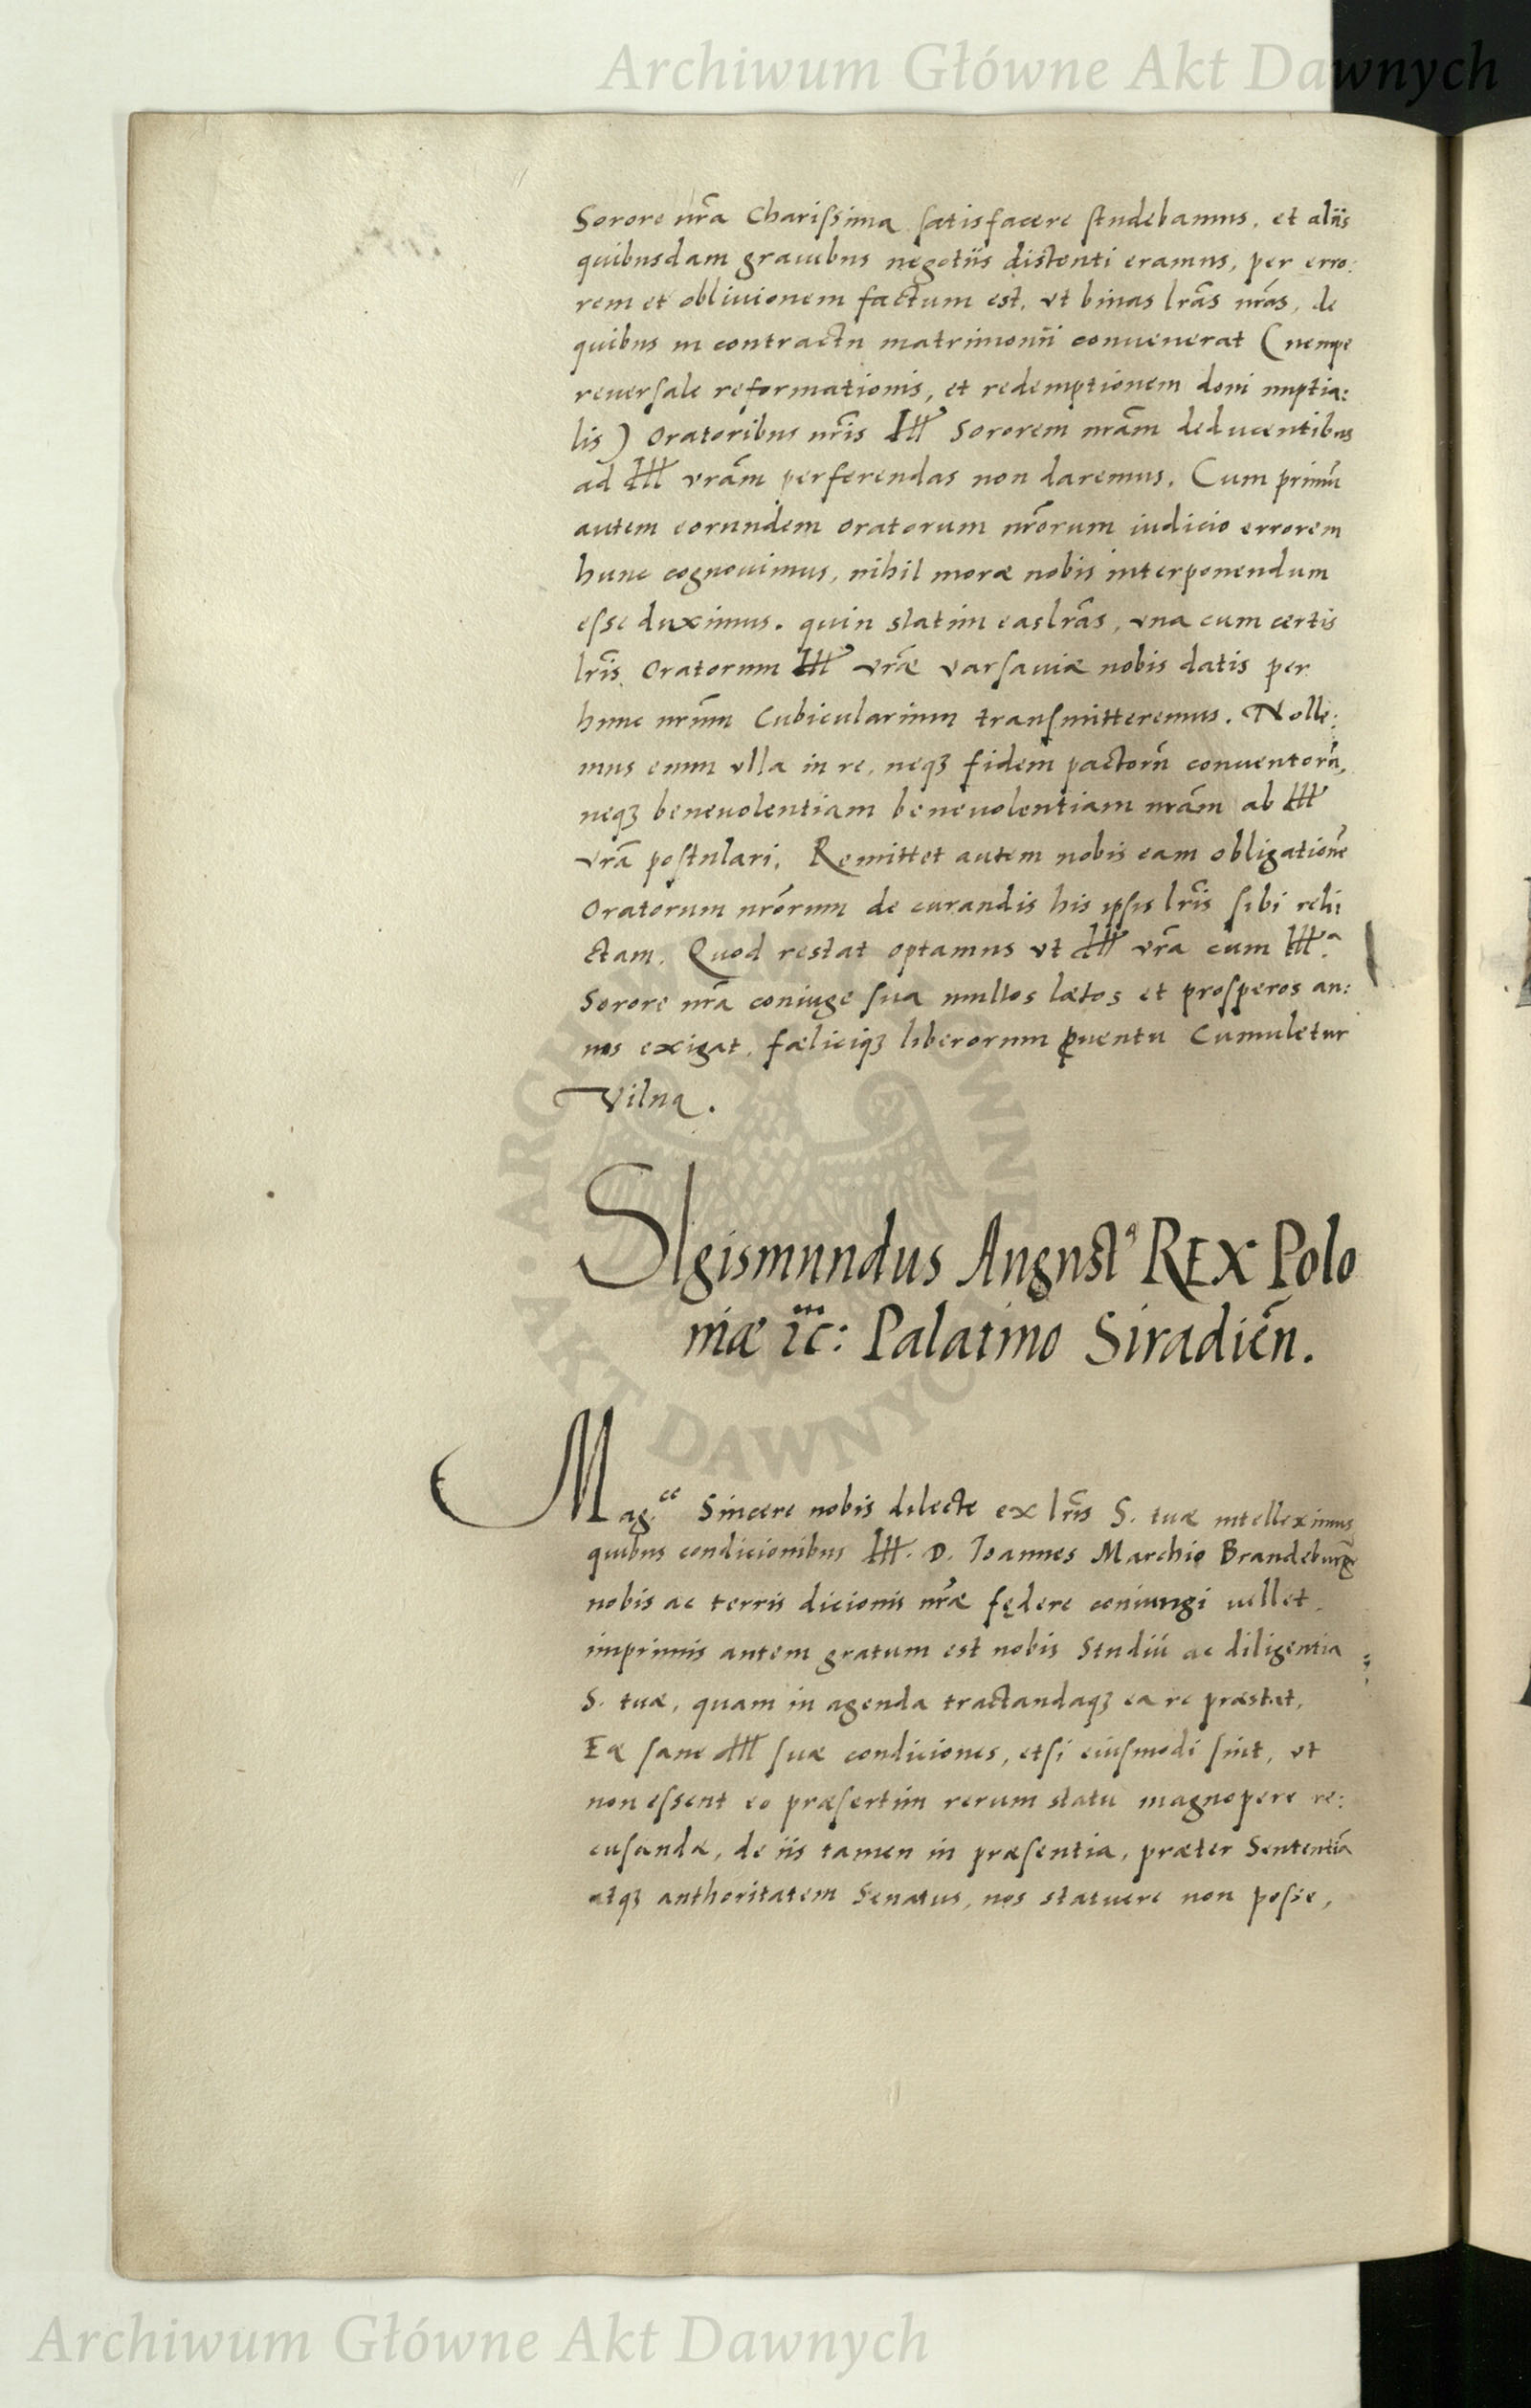 Archiwum Główne Akt Dawnych
Sorore nrã Charissima satisfacere studebamus, et aliis
quibusdam grauibus negotiis distenti eramus, per erro:
rem et obliuionem factum est, vt binas lrãs nrãs, de
quibus in contractu matrimonii conuenerat (nempe
reuersale reformationis, et redemptionem doni nuptia:
lis) Oratoribus nrĩs Ill Sororem nrãm deducentibus
ad Ill vrãm perferendas non daremus. Cum primũ
autem eorundem oratorum nrõrum iudicio errorem
hunc cognouimus, nihil moræ nobis interponendum
esse duximus. quin statim eas lrãs, vna cum certis
lrĩs Oratorum Ill vrãe varsauiæ nobis datis per
hunc nrũm Cubicularium transmitteremus. Nolle:
mus enim vlla in re, neqꝫ fidem pactorũ conuentorũ,
neqꝫ beneuolentiam beneuolentiam nrãm ab Ill
vrã postulari. Remittet autem nobis eam obligationẽ
Oratorum nrõrum de curandis his ipsis lrĩs sibi reli
ctam. Quod restat optamus vt Ill vrã cum Ill.ᵃ
Sorore nrã coniuge sua multos lætos et prosperos an:
nos exigat, fæliciqꝫ liberorum ꝓuentu Cumuletur
Vilnę.
SIgismundus Augustꝰ REX Polo
niæ ɿc: Palatino Siradiẽn.
Mag.ᶜᵉ Sincere nobis dilecte ex lrĩs S. tuæ intelleximus
quibus condicionibus Ill. D. Ioannes Marchio Brandeburg̃
nobis ac terris dicionis nrãe fędere coniungi uellet.
imprimis autem gratum est nobis Studiũ ac diligentia
S. tuæ, quam in agenda tractandaqꝫ ea re præstat.
Eæ sane Ill suæ condiciones, etsi eiusmodi sint, vt
non essent eo præsertim rerum statu magnopere re:
cusandæ, de iis tamen in præsentia, præter Sententiã
atqꝫ authoritatem Senatus, nos statuere non posse,
ARCHIWUM GŁÓWNE AKT DAWNYCH
Archiwum Główne Akt Dawnych